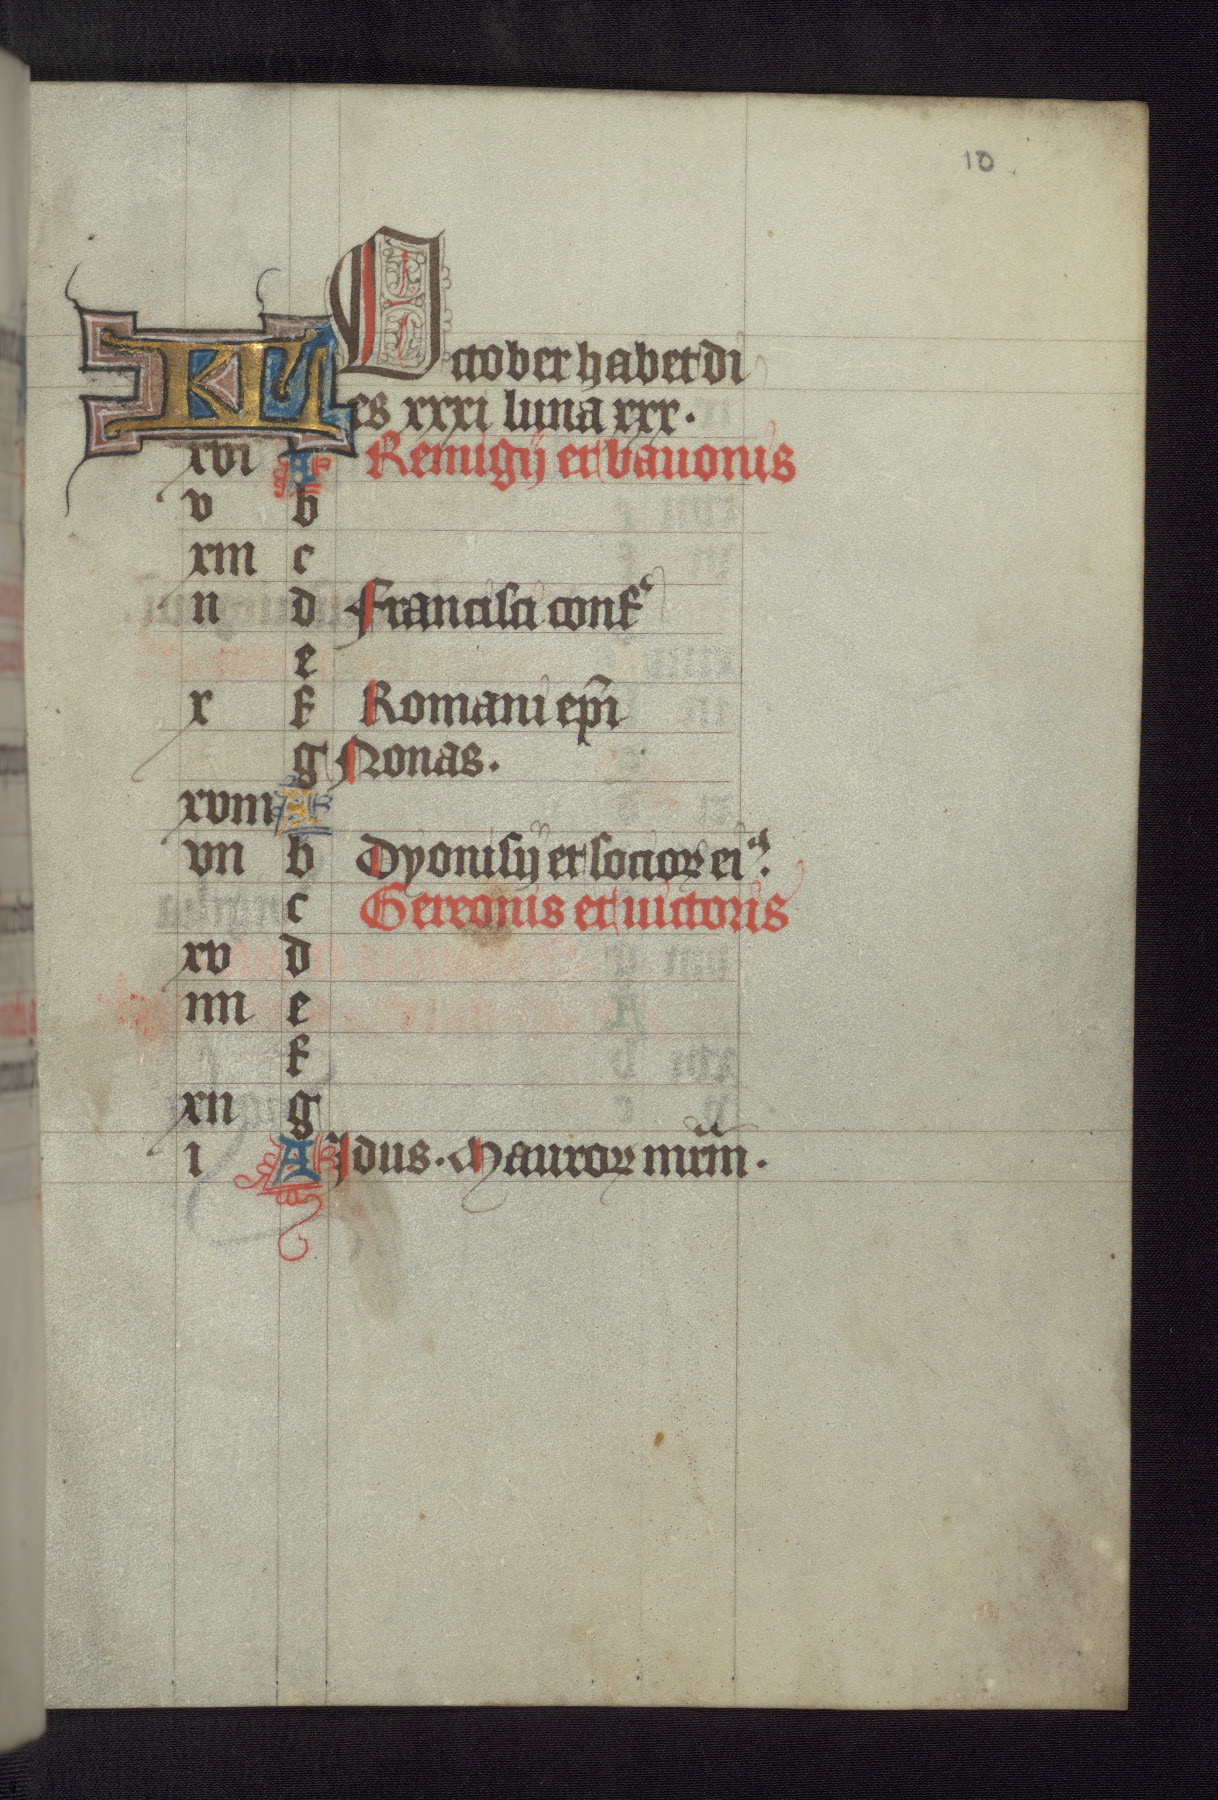 10
October habet di
KL es xxxi luna xxx.
xvi A Remigij et bauonis
v b
xiii c
ii d Francisci conf'
e
x f Romani ep̄i
g Nonas.
xviii A
vii b Dyonisij et socior ei9.
c Gereonis et uictoris
xv d
iiii e
f
xii g
i A Jdus. Mauror mr̄m.